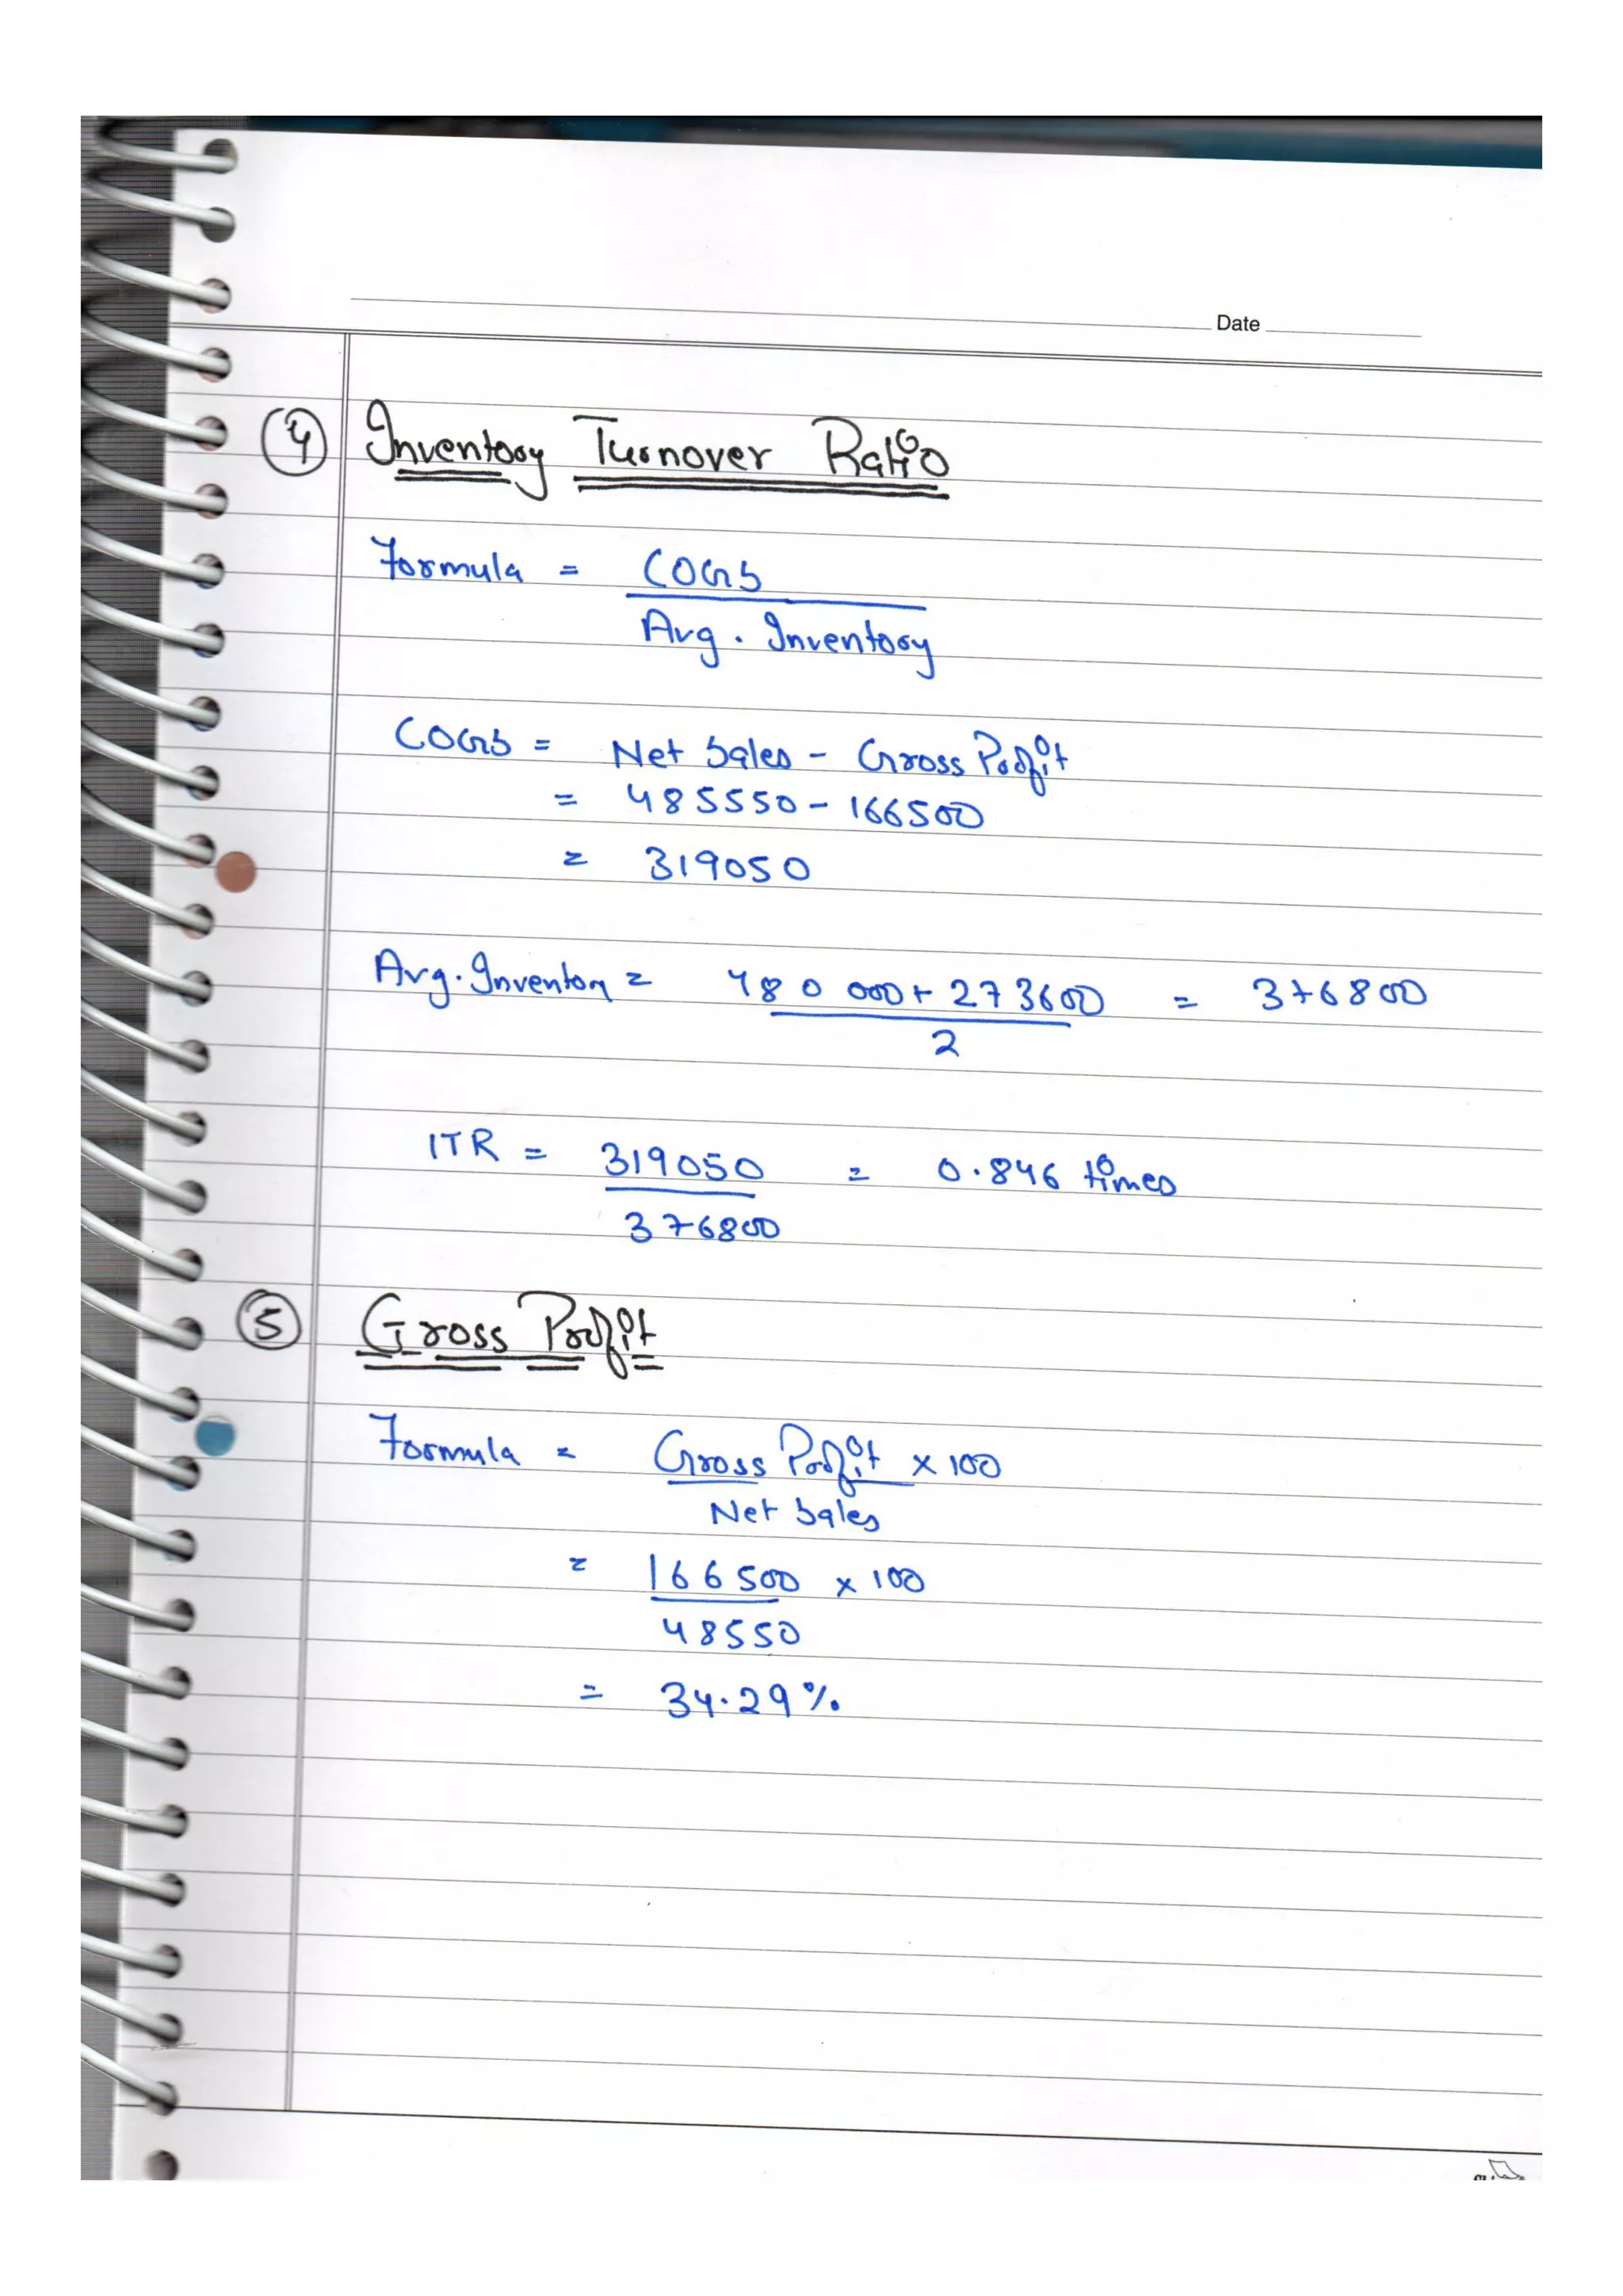 Date
4 Inventory Turnover Ratio
Formula = COGS
Avg. Inventory
COGS = Net Sales - Gross Profit
= 485550 - 166500
= 319050
Avg. Inventory = 480000 + 273600 = 376800
2
ITR = 319050 = 0.846 times
376800
5 Gross Profit
Formula = Gross Profit x 100
Net Sales
= 166500 x 100
48550
= 34.29%